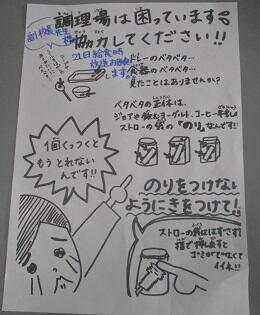 調理場は困っています
協力してください!!
副校長先生
21日給食時
放送お願い
します。
トレーのベタベタ…
食器のベタベタ…
見たことはありませんか?
ベタベタの正体は、
ジョアや飲むヨーグルト、コーヒー牛乳の
ストローの袋の「のり」なんです!!
1回くっつくと
もうとれない
んです!!
のりをつけない
ようにきをつけて!
ストローの袋ははずさず!
指で押し出すと
ゴミがでなくて
イイネ!!